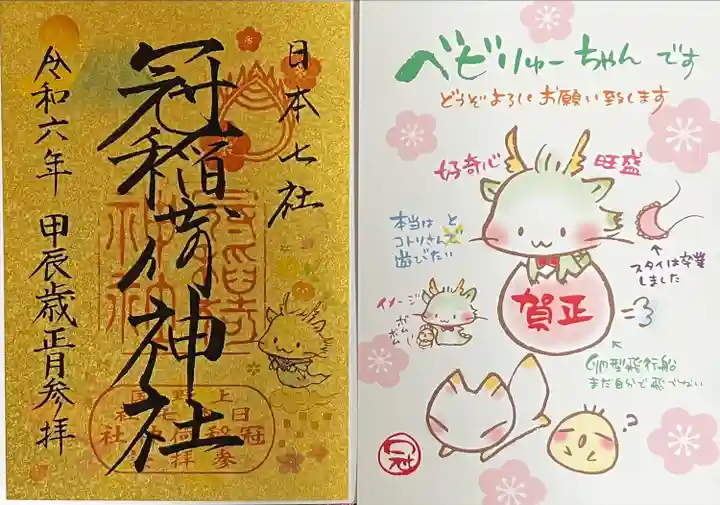 日本七社
冠稲荷神社
令和六年 甲辰歳正月参拝
ベビりゅーちゃん です
どうぞよろしくお願い致します
好奇心 旺盛
本当は
コトリさんと
遊びたい
スタイは卒業
しました
イメージ
賀正
卵型飛行船
まだ自分で飛べない
?
冠